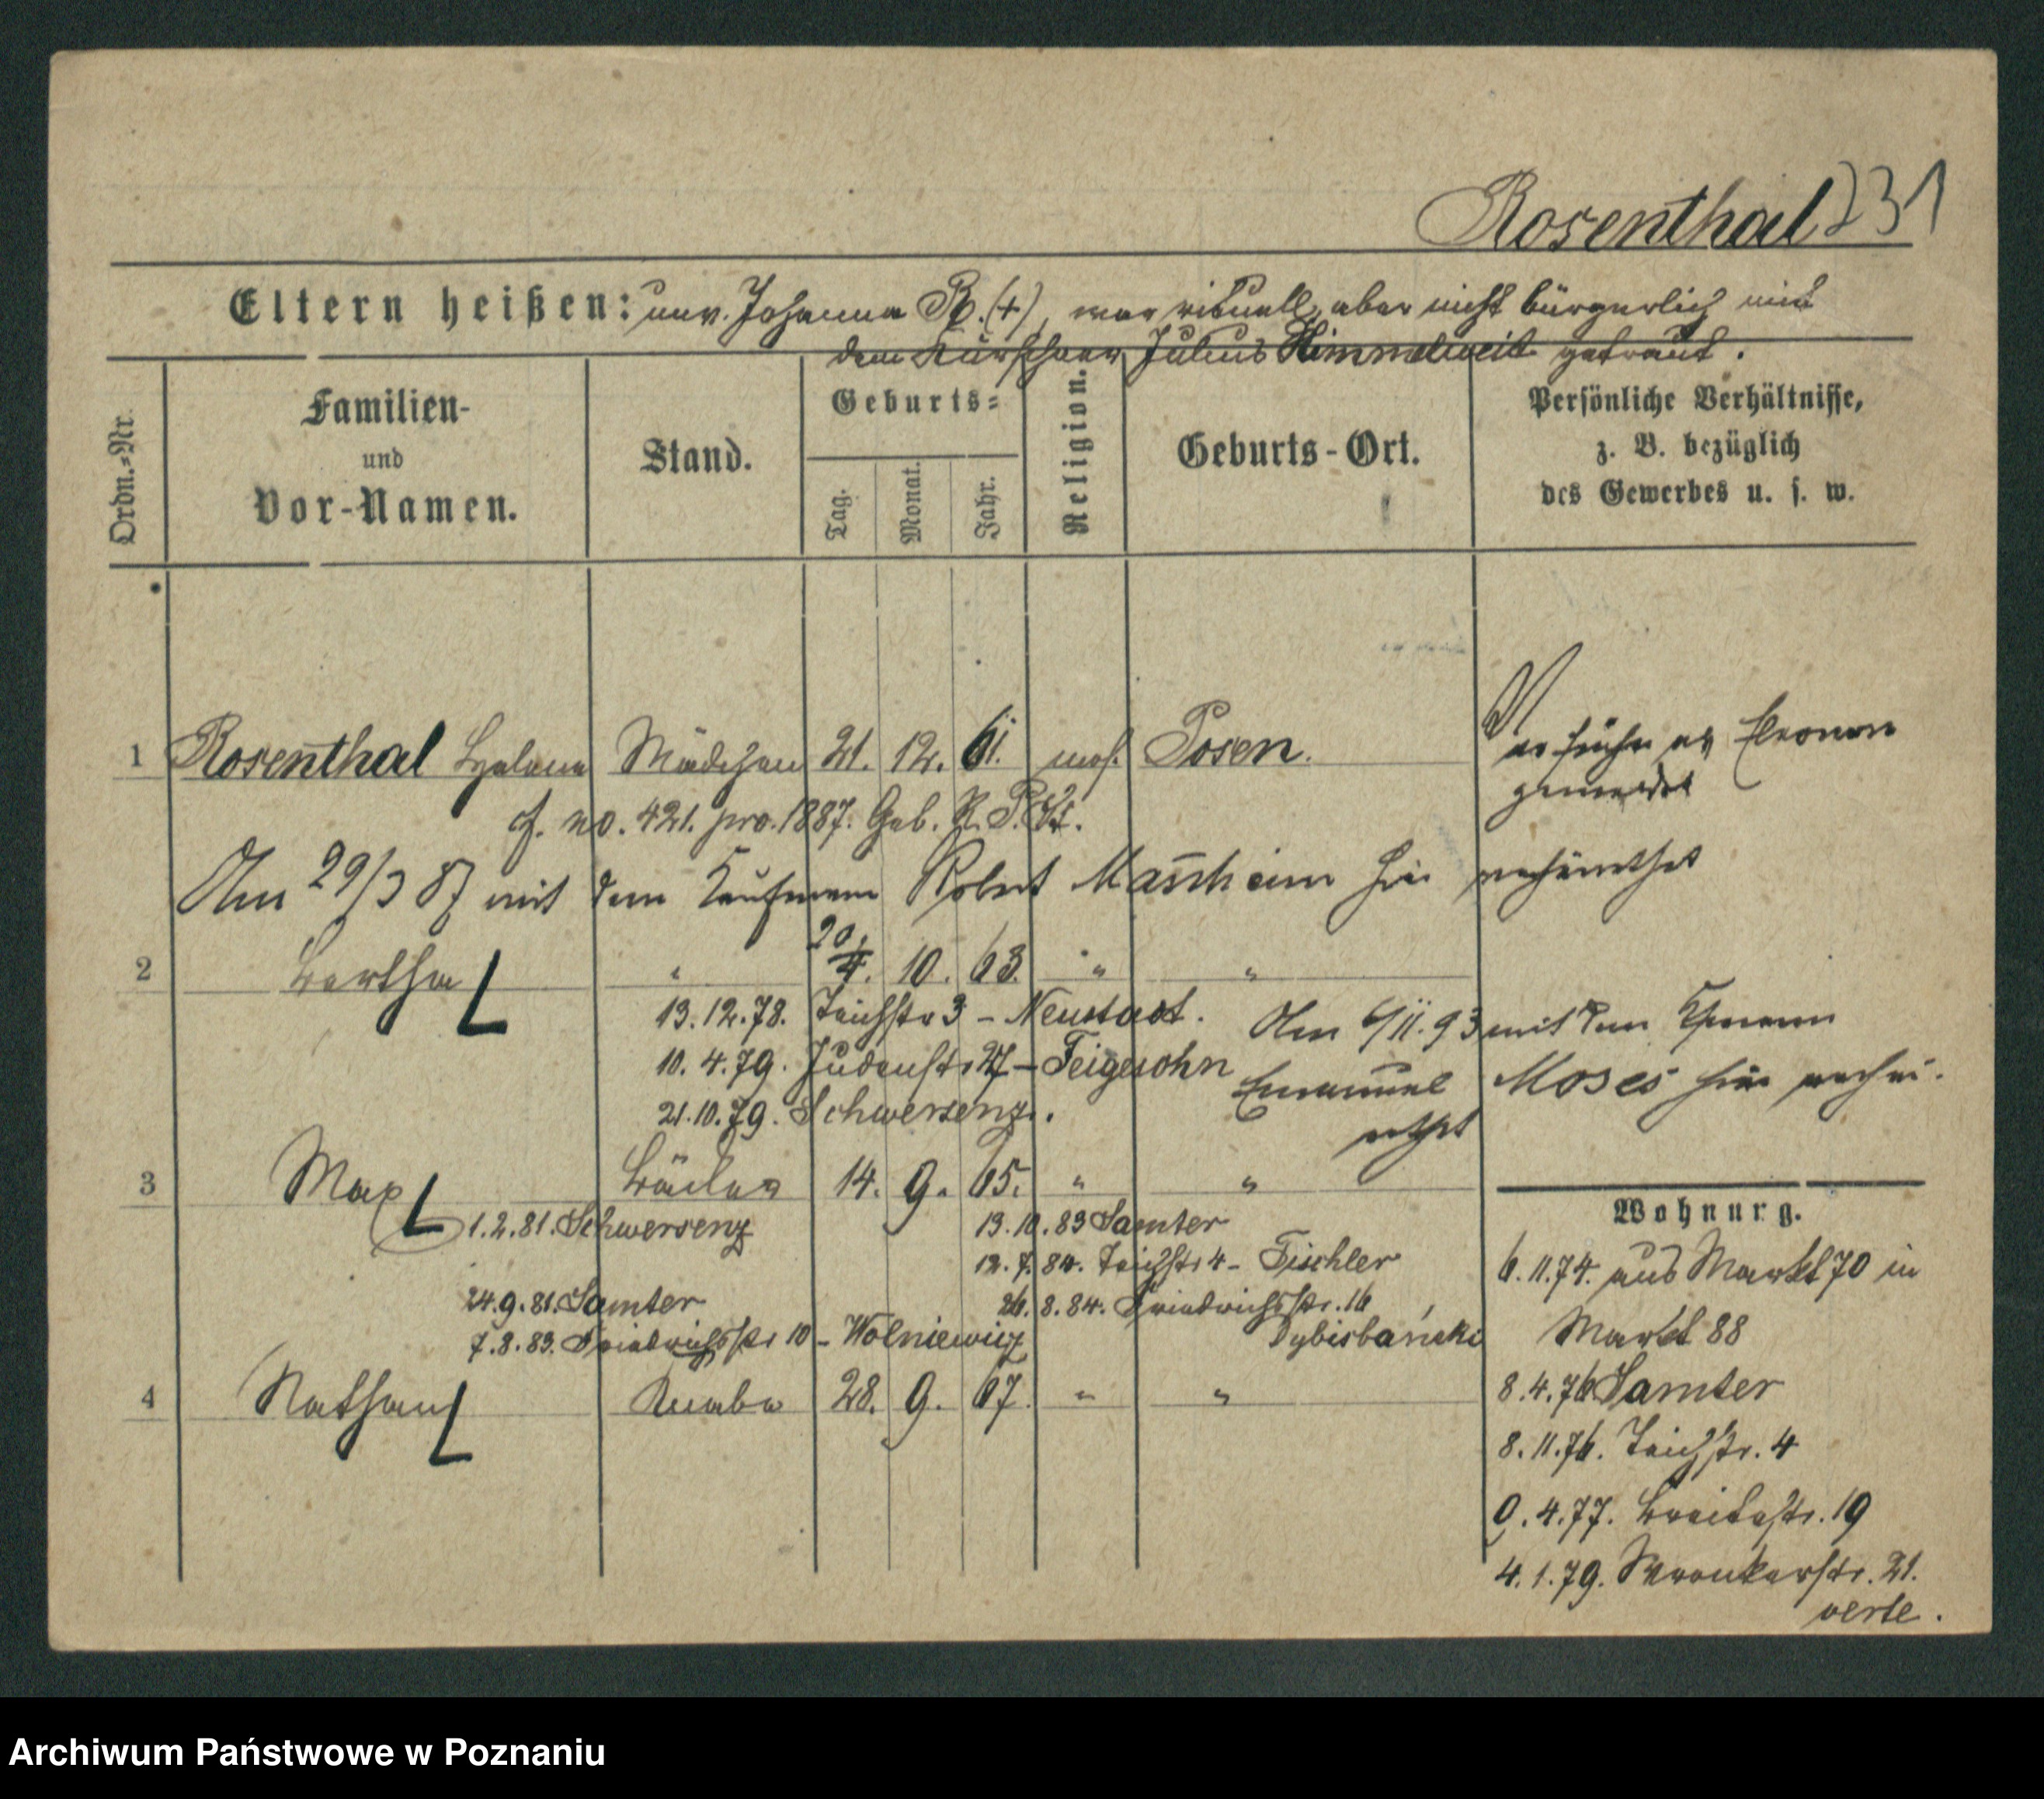 Rosenthal 231
Eltern heißen: unv. Johanna R. (+), war rituell, aber nicht bürgerlich mit
dem Kürschner Julius Himmelweit getraut.
Ordn.=Nr.
Familien-
und
Vor-Namen.
Stand.
Geburts=
Tag.
Monat.
Jahr.
Religion.
Geburts-Ort.
Persönliche Verhältnisse,
z. B. bezüglich
des Gewerbes u. s. w.
1 Rosenthal Helene Mädchen 21. 12. 61. mos. Posen.
früher als
gemeldet
cf. no. 421. pro. 1887. Geb. R. P.
Am 29/3 87 mit dem Kaufmann Robert hier verheirathet
2 Bertha " 20. 10. 63. " "
13.12.78. Teichstr 3 - Neustadt.
10.4.79. Judenstr 27 - Feigesohn
21.10.79. Schwersenz.
Am 6/11.93 mit dem Kfmann
Emanuel Moses hier verhei-
rathet
3 Max Bäcker 14. 9. 65. " "
1.2.81. Schwersenz
24.9.81. Samter
7.8.83. Friedrichsstr 10 - Wolniewicz
13.10.83 Samter
12.7.84. Teichstr 4 - Fischler
26.8.84. Friedrichsstr. 16
Dybisbański
4 Nathan Knabe 28. 9. 67. " "
Wohnung.
6.11.74. aus Markt 70 in
Markt 88
8.4.76 Samter
8.11.76. Teichstr. 4
9.4.77. Breitestr. 19
4.1.79. Wronkerstr. 21.
verte.
Archiwum Państwowe w Poznaniu